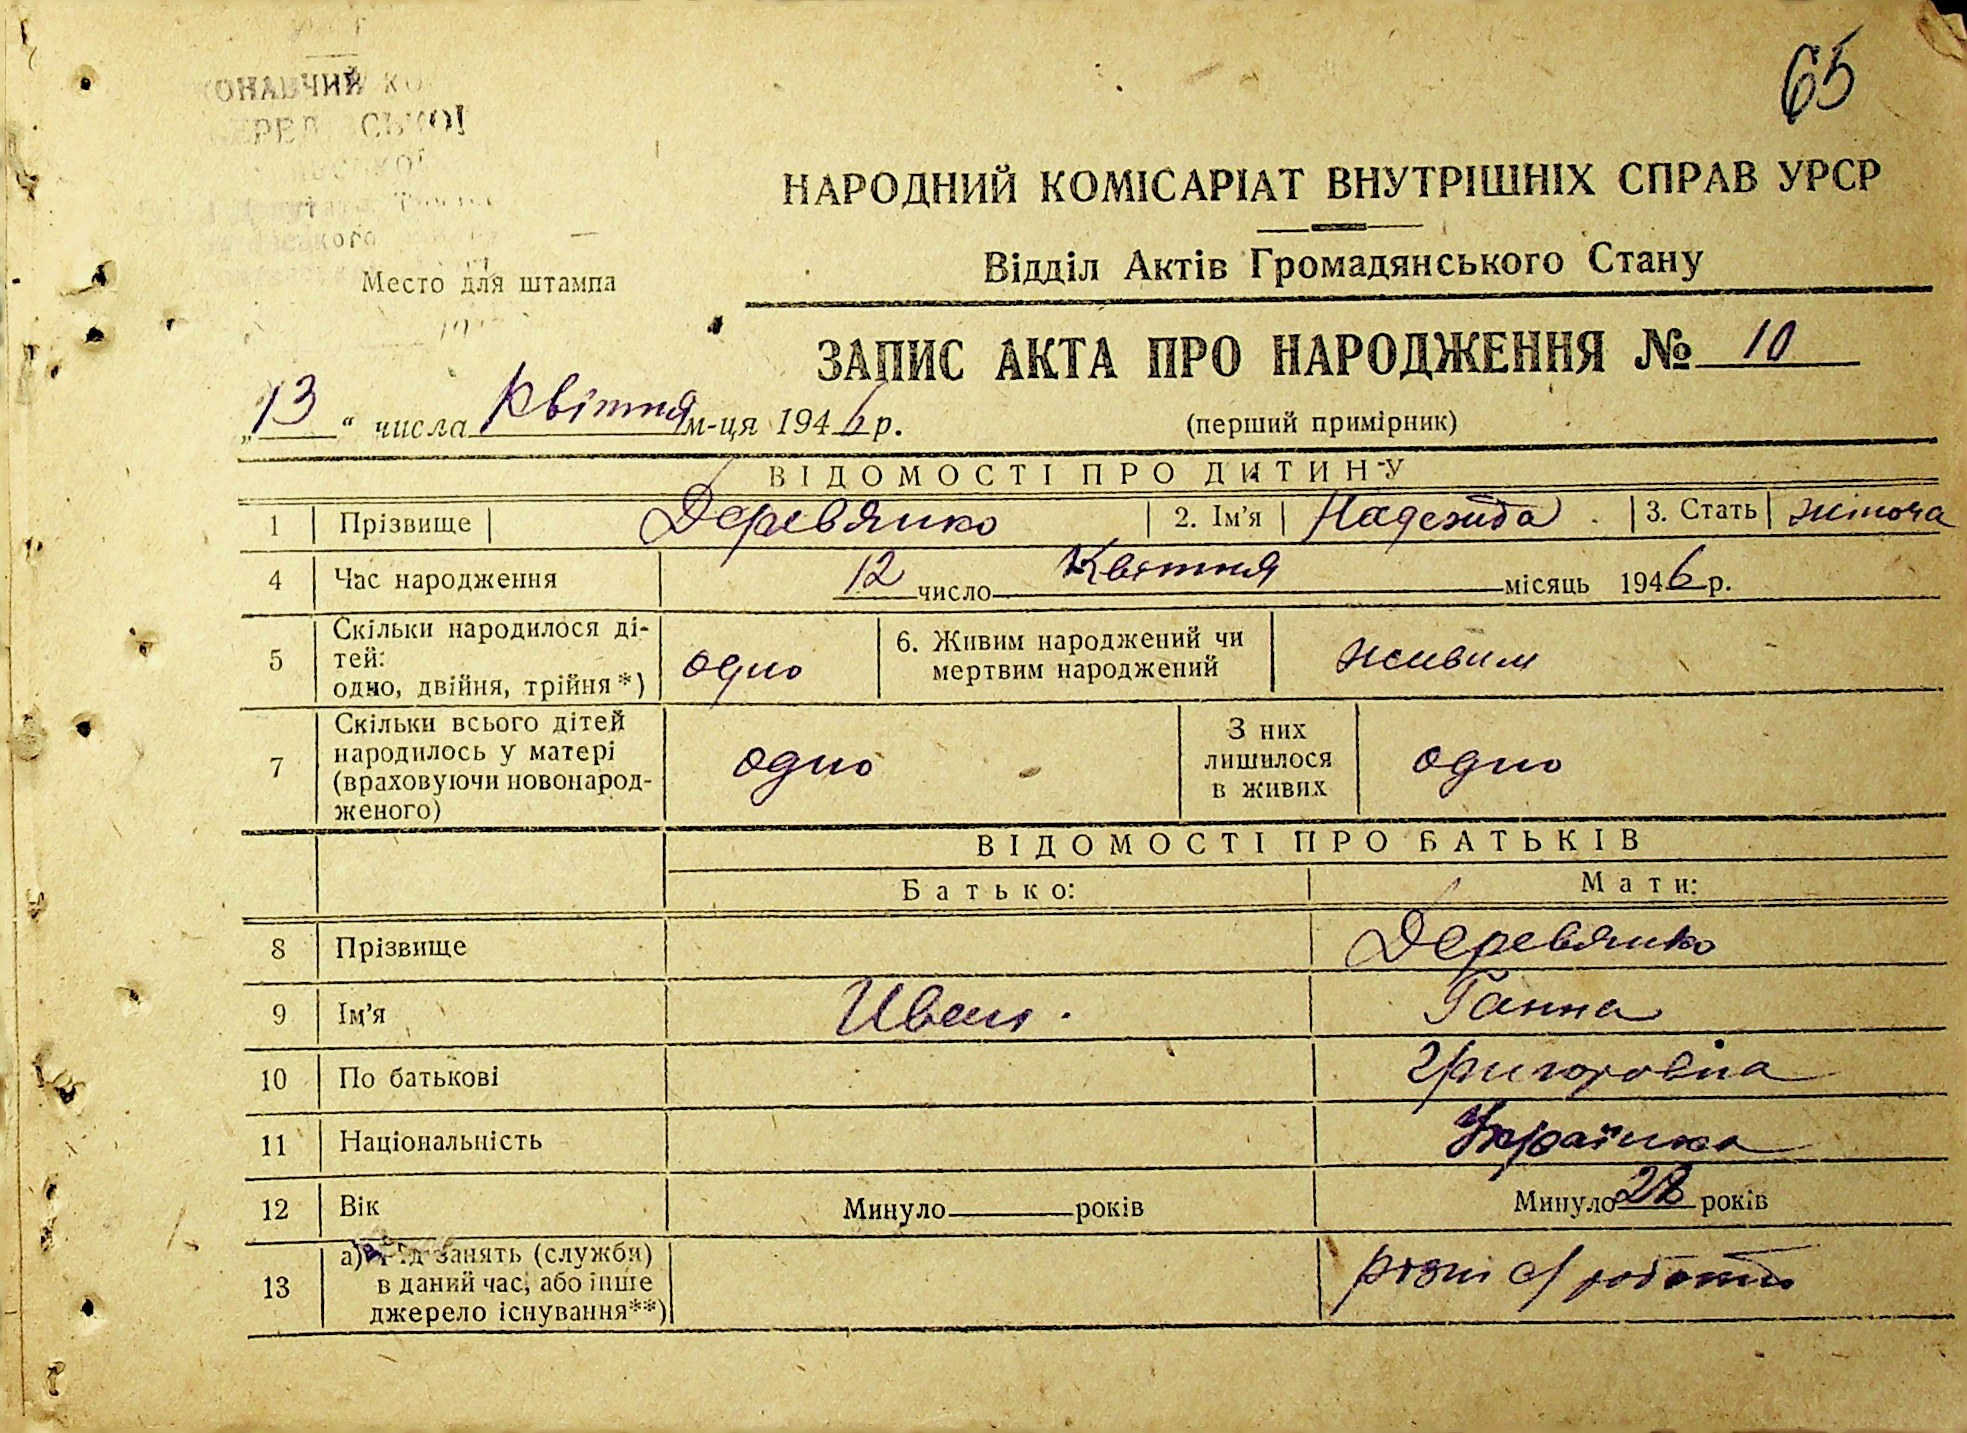 65
НАРОДНИЙ КОМІСАРІАТ ВНУТРІШНІХ СПРАВ УРСР
Відділ Актів Громадянського Стану
Место для штампа
ЗАПИС АКТА ПРО НАРОДЖЕННЯ № 10
„13“ числа Квітня м-ця 1946 р.
(перший примірник)
ВІДОМОСТІ ПРО ДИТИНУ
1 Прізвище Деревянко 2. Ім'я Надежда 3. Стать жіноча
4 Час народження 12 число Квітня місяць 1946 р.
5 Скільки народилося ді-
тей:
одно, двійня, трійня*) одно 6. Живим народжений чи
мертвим народжений живим
7 Скільки всього дітей
народилось у матері
(враховуючи новонарод-
женого) одно З них
лишилося
в живих одно
ВІДОМОСТІ ПРО БАТЬКІВ
Батько: Мати:
8 Прізвище Деревянко
9 Ім'я Иван. Ганна
10 По батькові Григоровна
11 Національність Українка
12 Вік Минуло років Минуло 28 років
13 а) Рід занять (служби)
в даний час, або інше
джерело існування**) розні с/ роботы